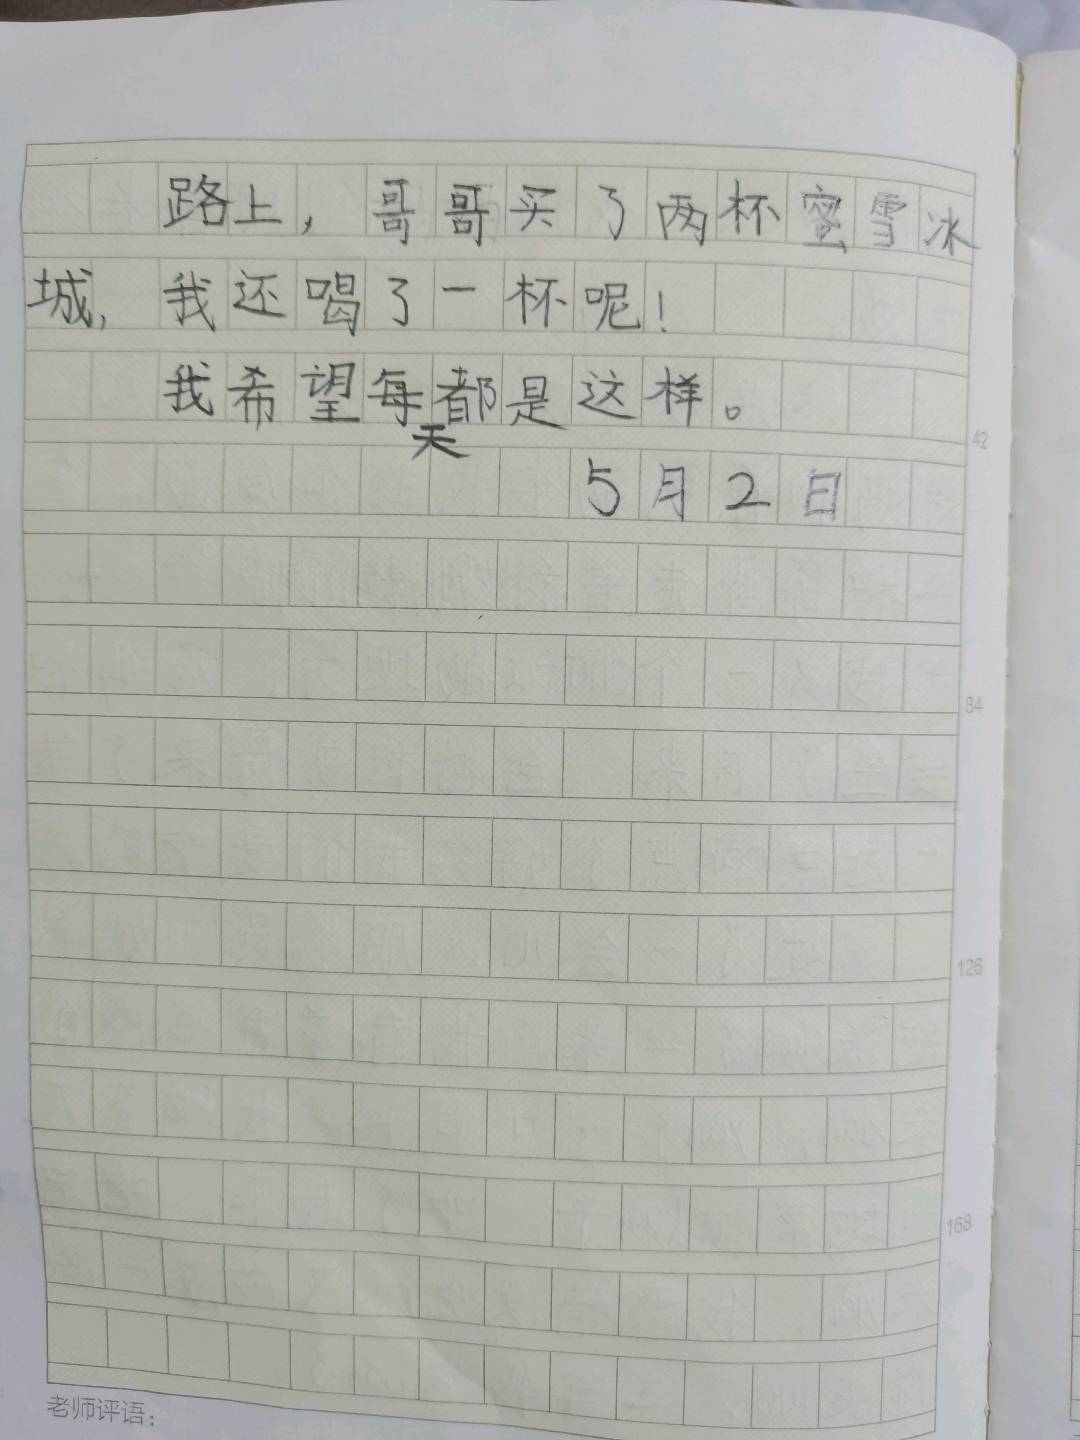 路上，哥哥买了两杯蜜雪冰
城，我还喝了一杯呢！
我希望每天都是这样。
5月2日
42
84
126
168
老师评语：